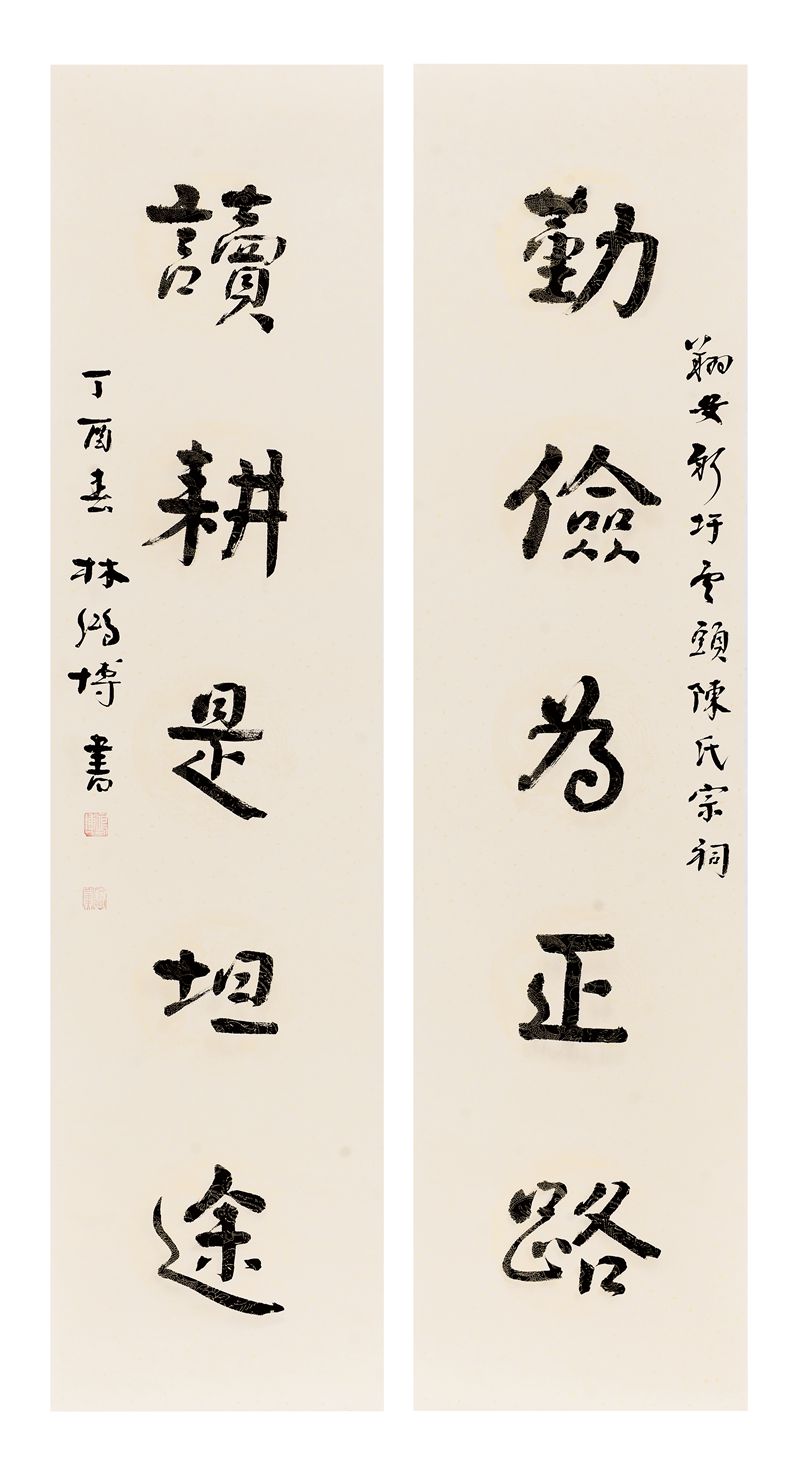 翔安新圩雲頭陳氏宗祠
勤儉為正路
讀耕是坦途
丁酉春 林鴻博 書